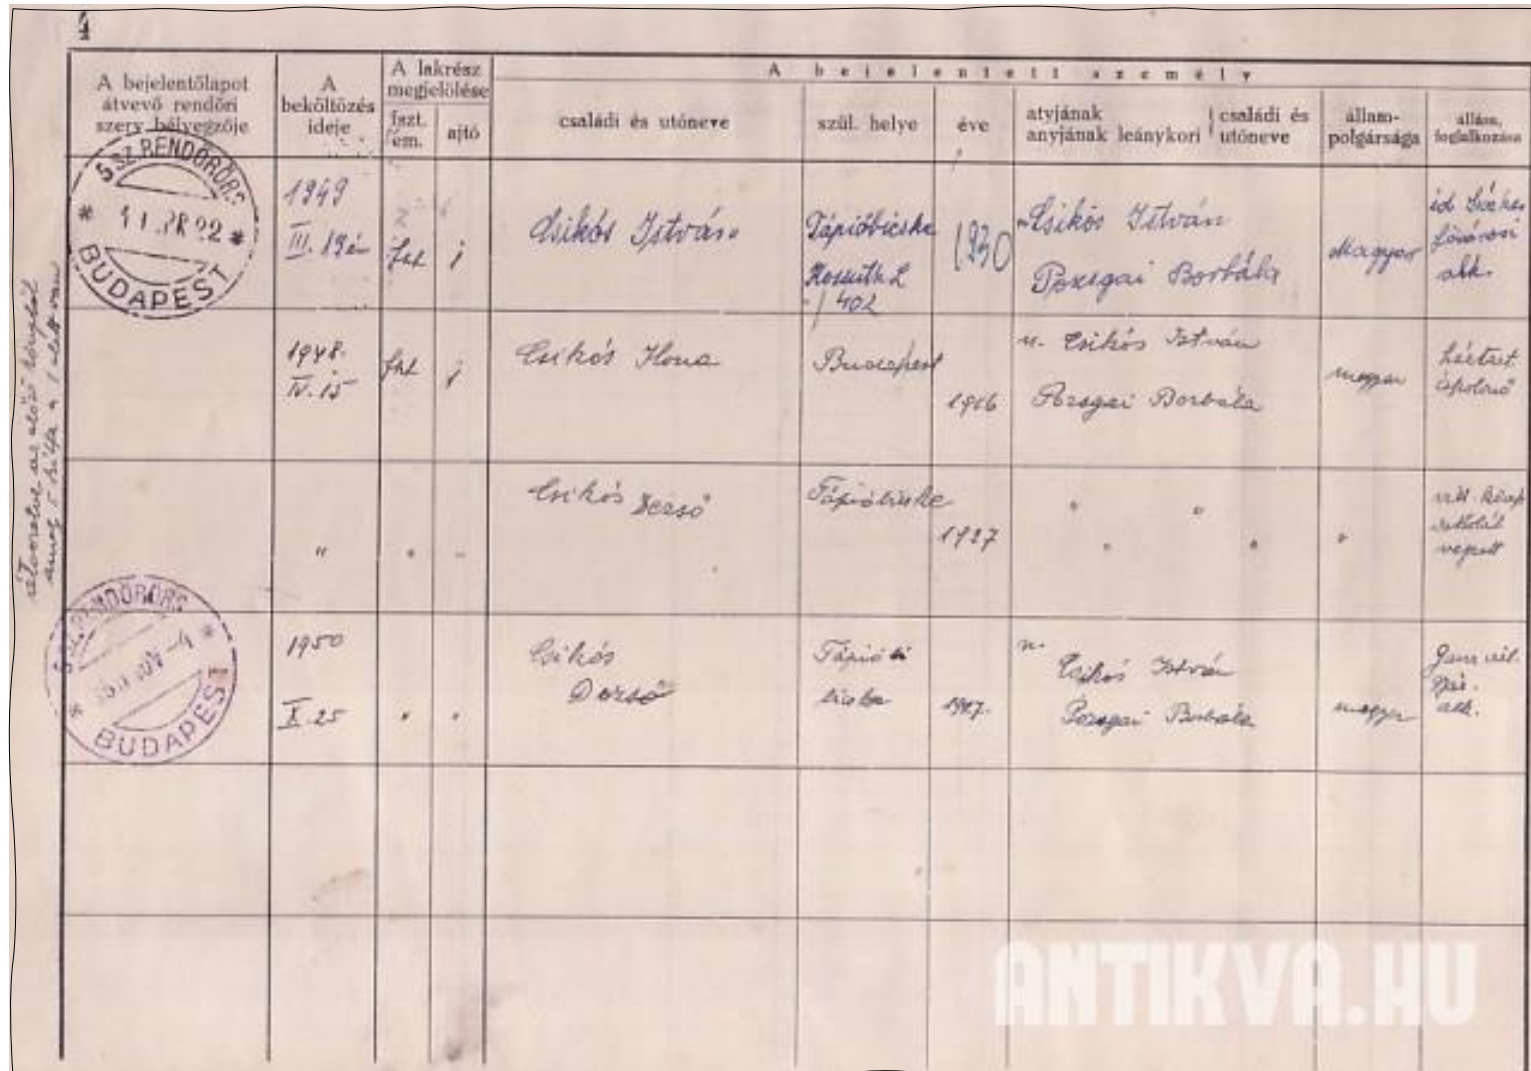 4
A bejelentőlapot
átvevő rendőri
szerv bélyegzője
A
beköltözés
ideje
A lakrész
megjelölése
fszt.
em.
ajtó
A bejelentett személy
családi és utóneve
szül. helye
éve
atyjának
anyjának leánykori
családi és
utóneve
állam-
polgársága
állása,
foglalkozása
5 SZ. RENDŐRŐRS
BUDAPEST
1949
III. 19
fszt
j
Csikós István
Tápióbicske
Kossuth L
402
1930
Csikós István
Pozsgai Borbála
Magyar
fővárosi
alk.
1948.
IV. 15
fszt
j
Csikós Ilona
Budapest
u. Csikós István
Pozsgai Borbála
magyar
ápolónő
"
Csikós Dezső
Tápióbicske
1927
végzett
SZ. RENDŐRŐRS
BUDAPEST
1950
X. 25
Csikós
Dezső
Tápió
bicske
1927.
Csikós István
Pozsgai Borbála
magyar
Ganz
alk.
ANTIKVA.HU